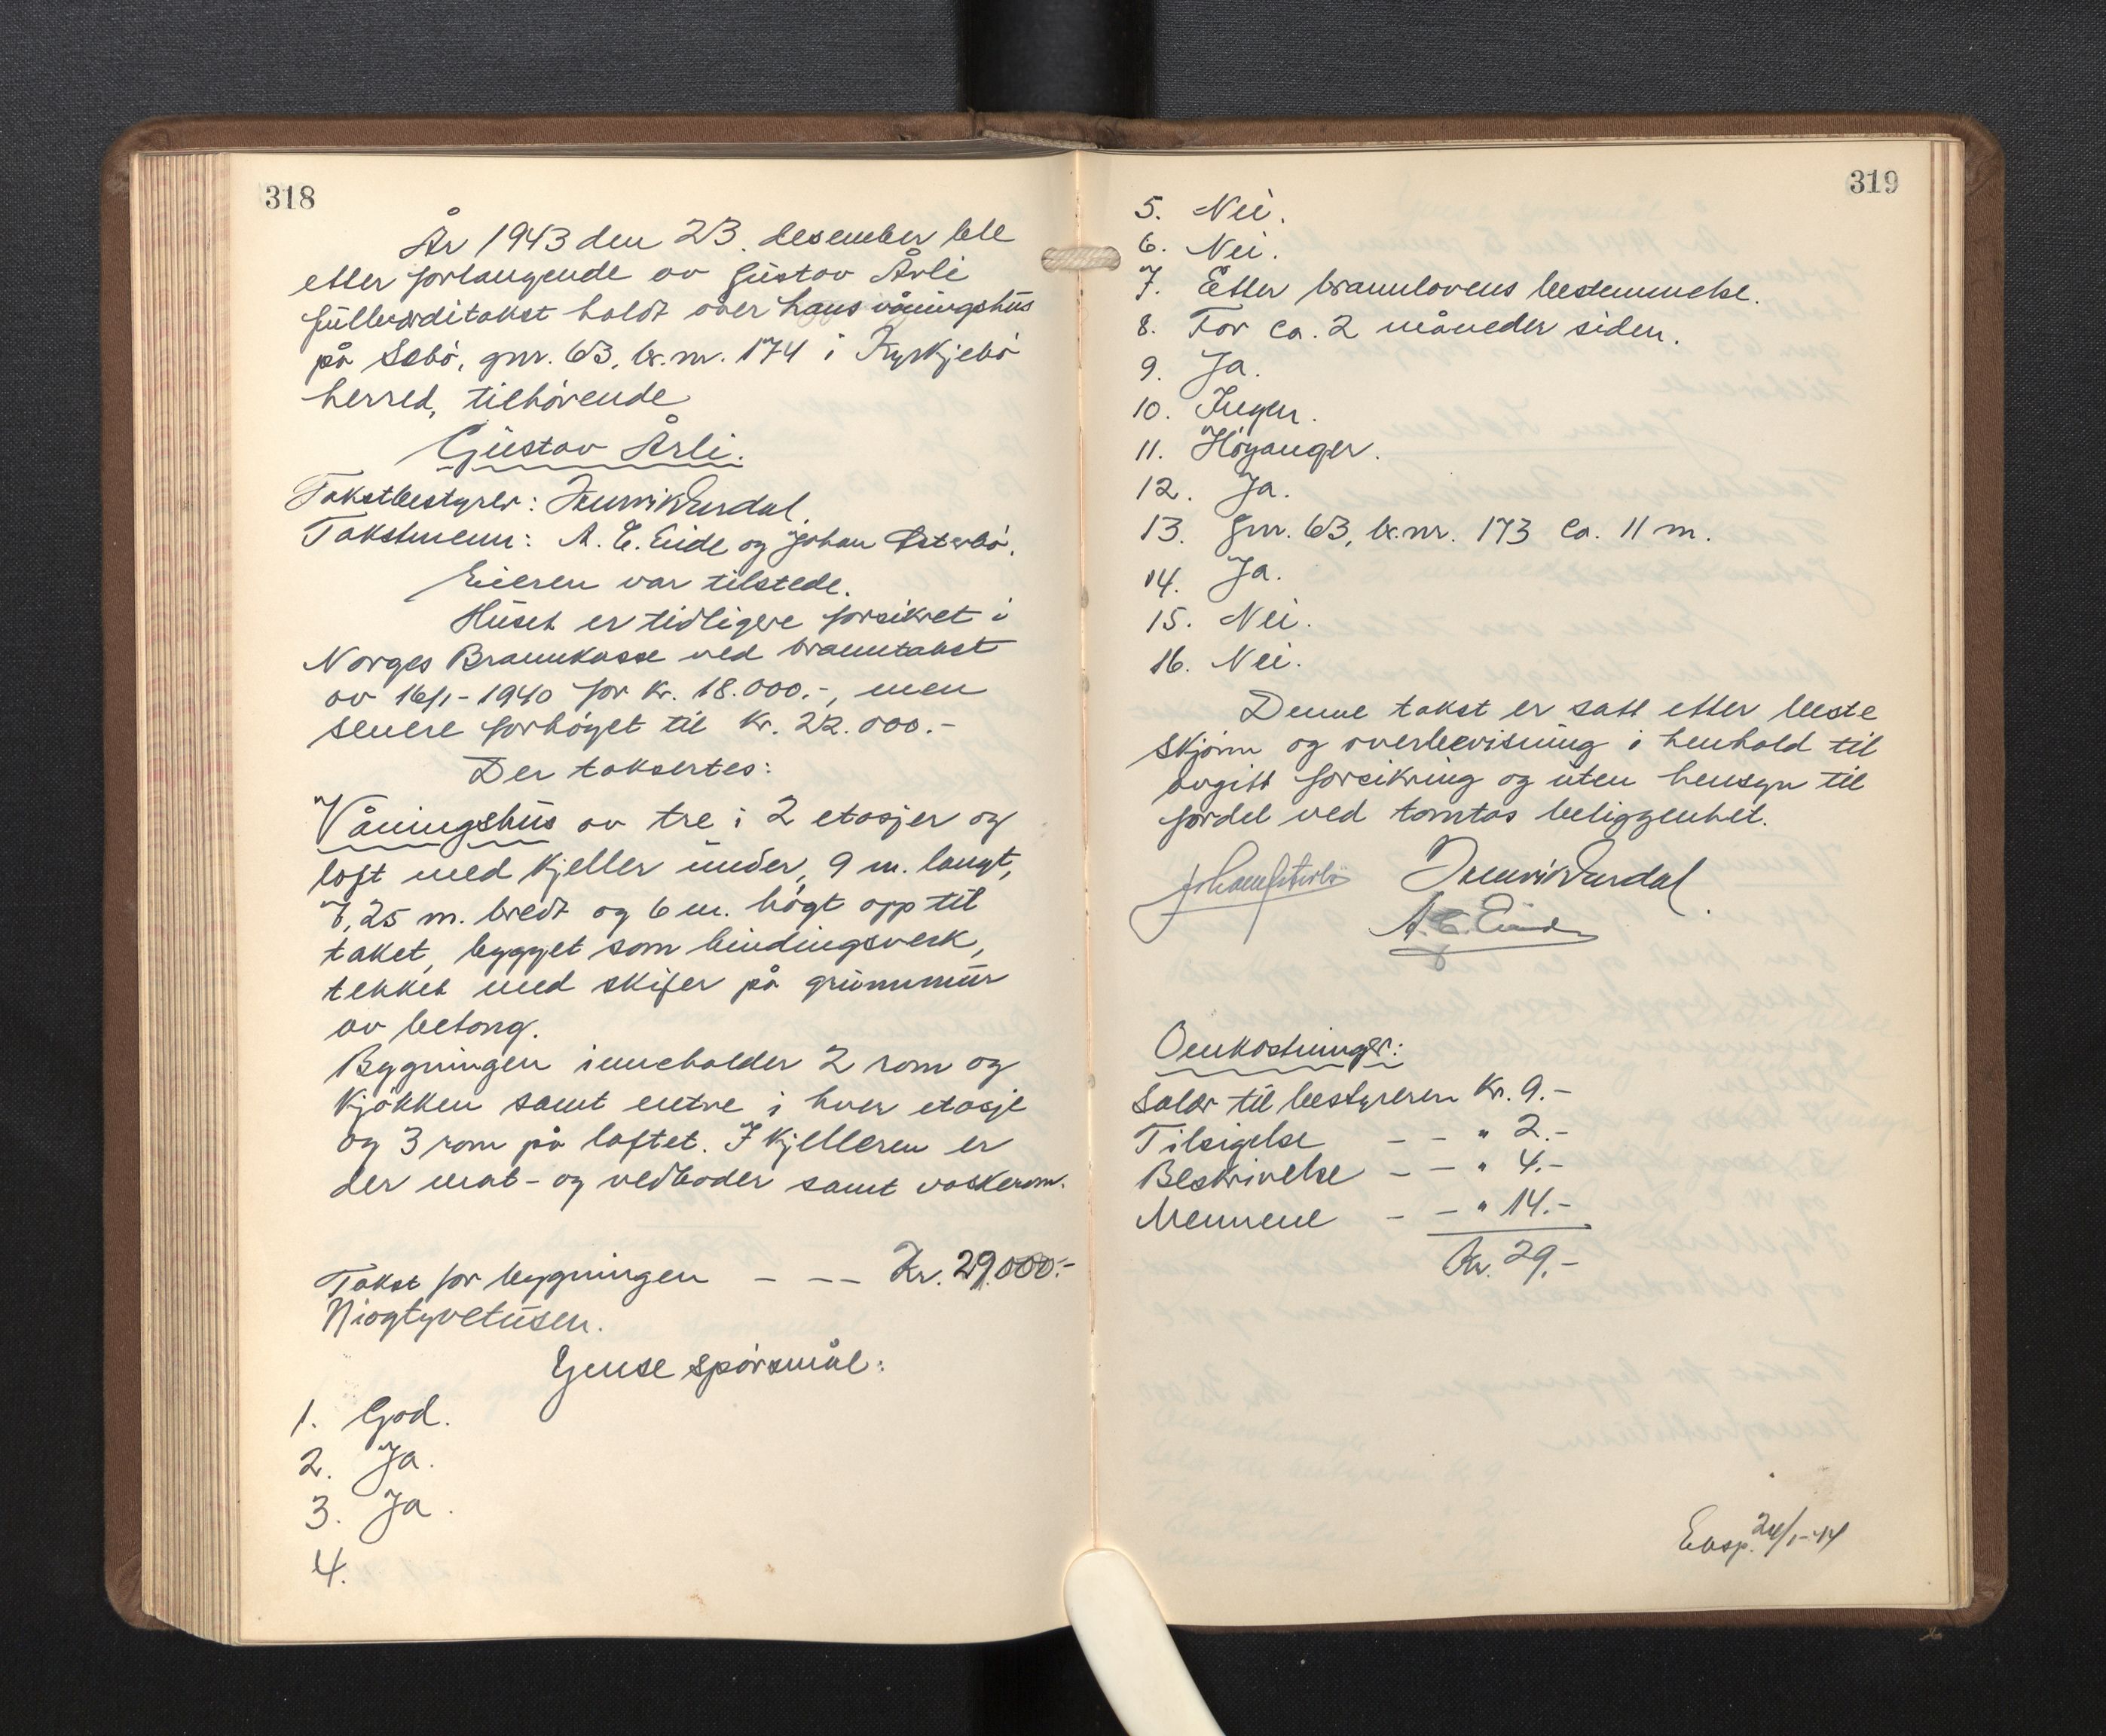 318
År 1943 den 23. desember ble
etter forlangende av Gustav Årli
fullverditakst holdt over hans våningshus
på Sæbö, gnr. 63, br.nr. 174 i Kyrkjebö
herred, tilhörende
Gustav Årli.
Takstbestyrer: Henrik Erdal.
Takstmenn: A. E. Eide og Johan Österbö.
Eieren var tilstede.
Huset er tidligere forsikret i
Norges Brannkasse ved branntakst
av 16/1-1940 for kr. 18.000.-, men
senere forhöyet til kr. 22.000.-
Der taksertes:
Våningshus av tre i 2 etasjer og
loft med kjeller under, 9 m. langt,
7,25 m. bredt og 6 m. högt opp til
taket, bygget som bindingsverk,
tekket med skifer på grunnmur
av betong.
Bygningen inneholder 2 rom og
kjökken samt entre i hver etasje
og 3 rom på loftet. I kjelleren er
der mat- og vedboder samt vaskerom.
Takst for bygningen - - - Kr. 29.000.-
Niogtyvetusen.
Ymse spörsmål:
1. God.
2. Ja.
3. Ja.
4.
319
5. Nei.
6. Nei.
7. Etter brannlovens bestemmelse.
8. For ca. 2 måneder siden.
9. Ja.
10. Ingen.
11. Höyanger.
12. Ja.
13. Gnr. 63, br.nr. 173 ca. 11 m.
14. Ja.
15. Nei.
16. Nei.
Denne takst er satt etter beste
skjönn og overbevisning i henhold til
avgitt forsikring og uten hensyn til
fordel ved tomtas beliggenhet.
Johan Österbö Henrik Erdal.
A. E. Eide
Omkostninger:
Salær til bestyreren Kr. 9.-
Tilsigelse - - " 2.-
Beskrivelse - - " 4.-
Mennene - - " 14.-
Kr. 29.-
Eksp. 24/1-44